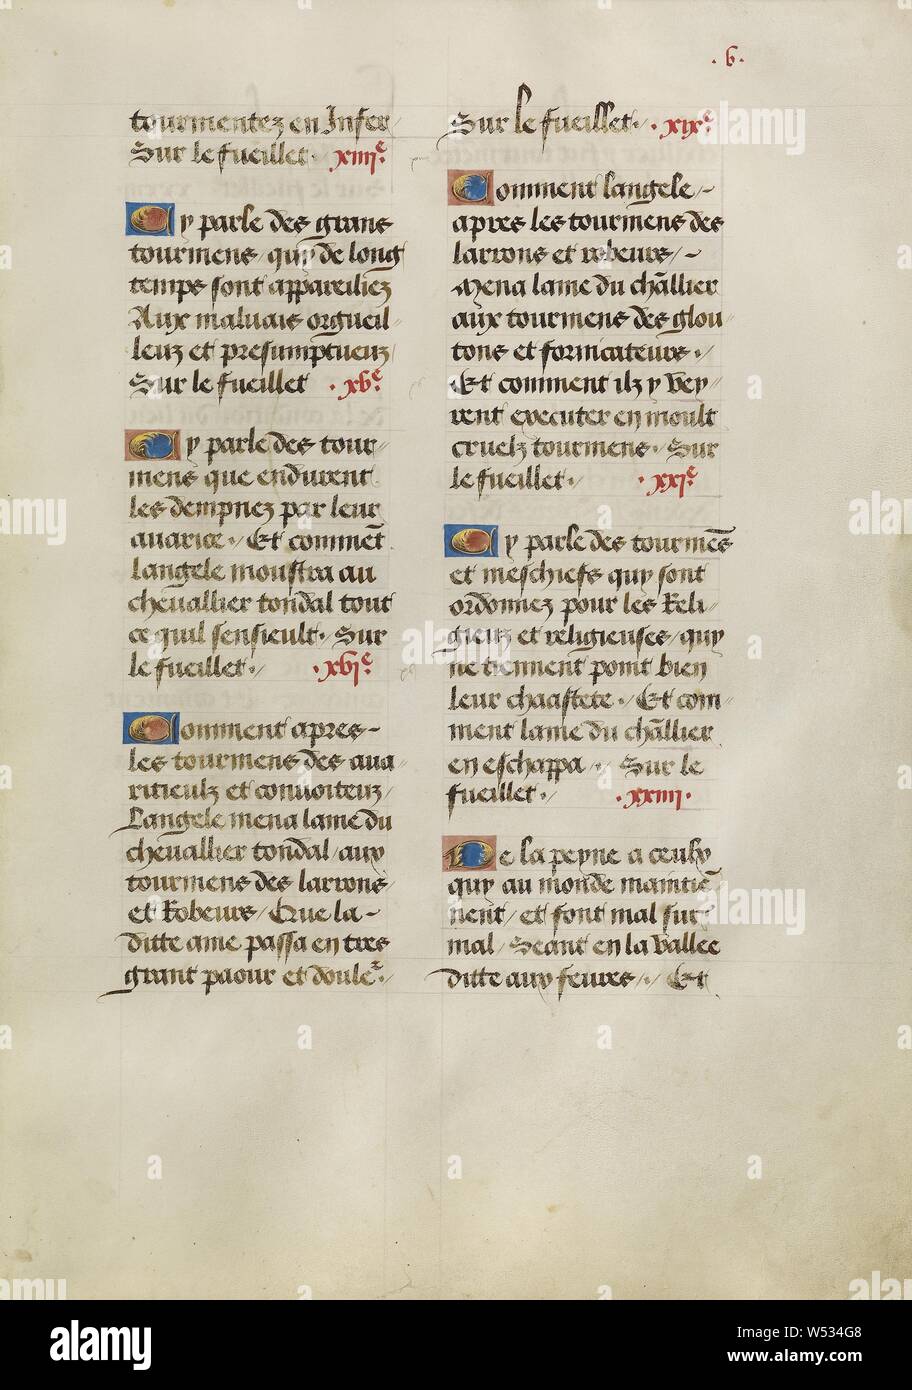 .6.
tourmentez en Infer
Sur le fueillet. xiiije.
Cy parle des grans
tourmens/ quy de long
temps sont appareilliez
Aux maluais orgueil
leuz et presumptueuz/
Sur le fueillet .xve.
Cy parle des tour-
mens que endurent
les dempnez par leur
auarice./ Et commēt
langele moustra au
cheuallier tondal tout
ce quil sensieult. Sur
le fueillet./ .xvje.
Comment apres-
les tourmens des aua
ritieulz et conuoiteuz/
Langele mena lame du
cheuallier tondal/ aux
tourmens des larrons/
et Robeurs/ Que la-
ditte ame passa en tres
grant paour et doule.r/
Sur le fueillet. .xixe.
Comment langele/-
apres les tourmens des
larrons et robeurs/-
Mena lame du chāllier
aux tourmens des glou-
tons et fornicateurs./
Et comment ilz y vey-
rent executer en moult
cruelz tourmens. Sur
le fueillet./ .xxje.
Cy parle des tourmēs
et meschiefs quy sont
ordonnez pour les Reli-
gieuz et religieuses/ quy
ne tiennent point bien
leur chaastete./ Et com-
ment lame du chāllier
en eschappa./ Sur le
fueillet./ .xxiiij.
De la peyne a ceulx
quy au monde maintiē-
nent/ et font mal sur
mal/ Seant en la vallee
ditte aux feures././ Et
alamy
a
alamy
Image ID: W534G8
www.alamy.com